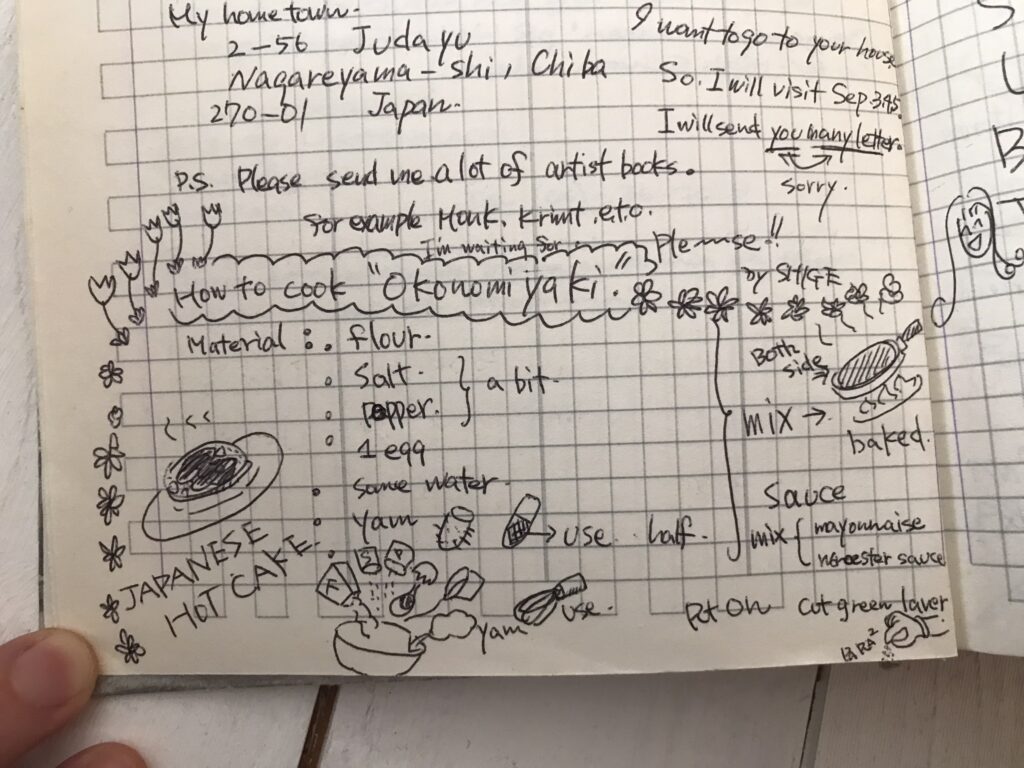 My hometown.
2-56 Judayu
Nagareyama-shi, Chiba
270-01 Japan.
I want to go to your house
So. I will visit Sep.
I will send you many letter.
sorry.
P.S. Please send me a lot of artist books.
for example Monk. Krimt. etc.
I'm waiting for
Please!!
How to cook "Okonomiyaki."
by SHIGE
Material : . flour.
. Salt.
. pepper.
a bit.
. 1 egg
. some water.
. yam
→ use half.
JAPANESE
HOT CAKE.
F
S
P
yam
use.
Both
side
mix →
baked.
Sauce
mix { mayonnaise
worcester sauce
Put on cut green laver
PARA²